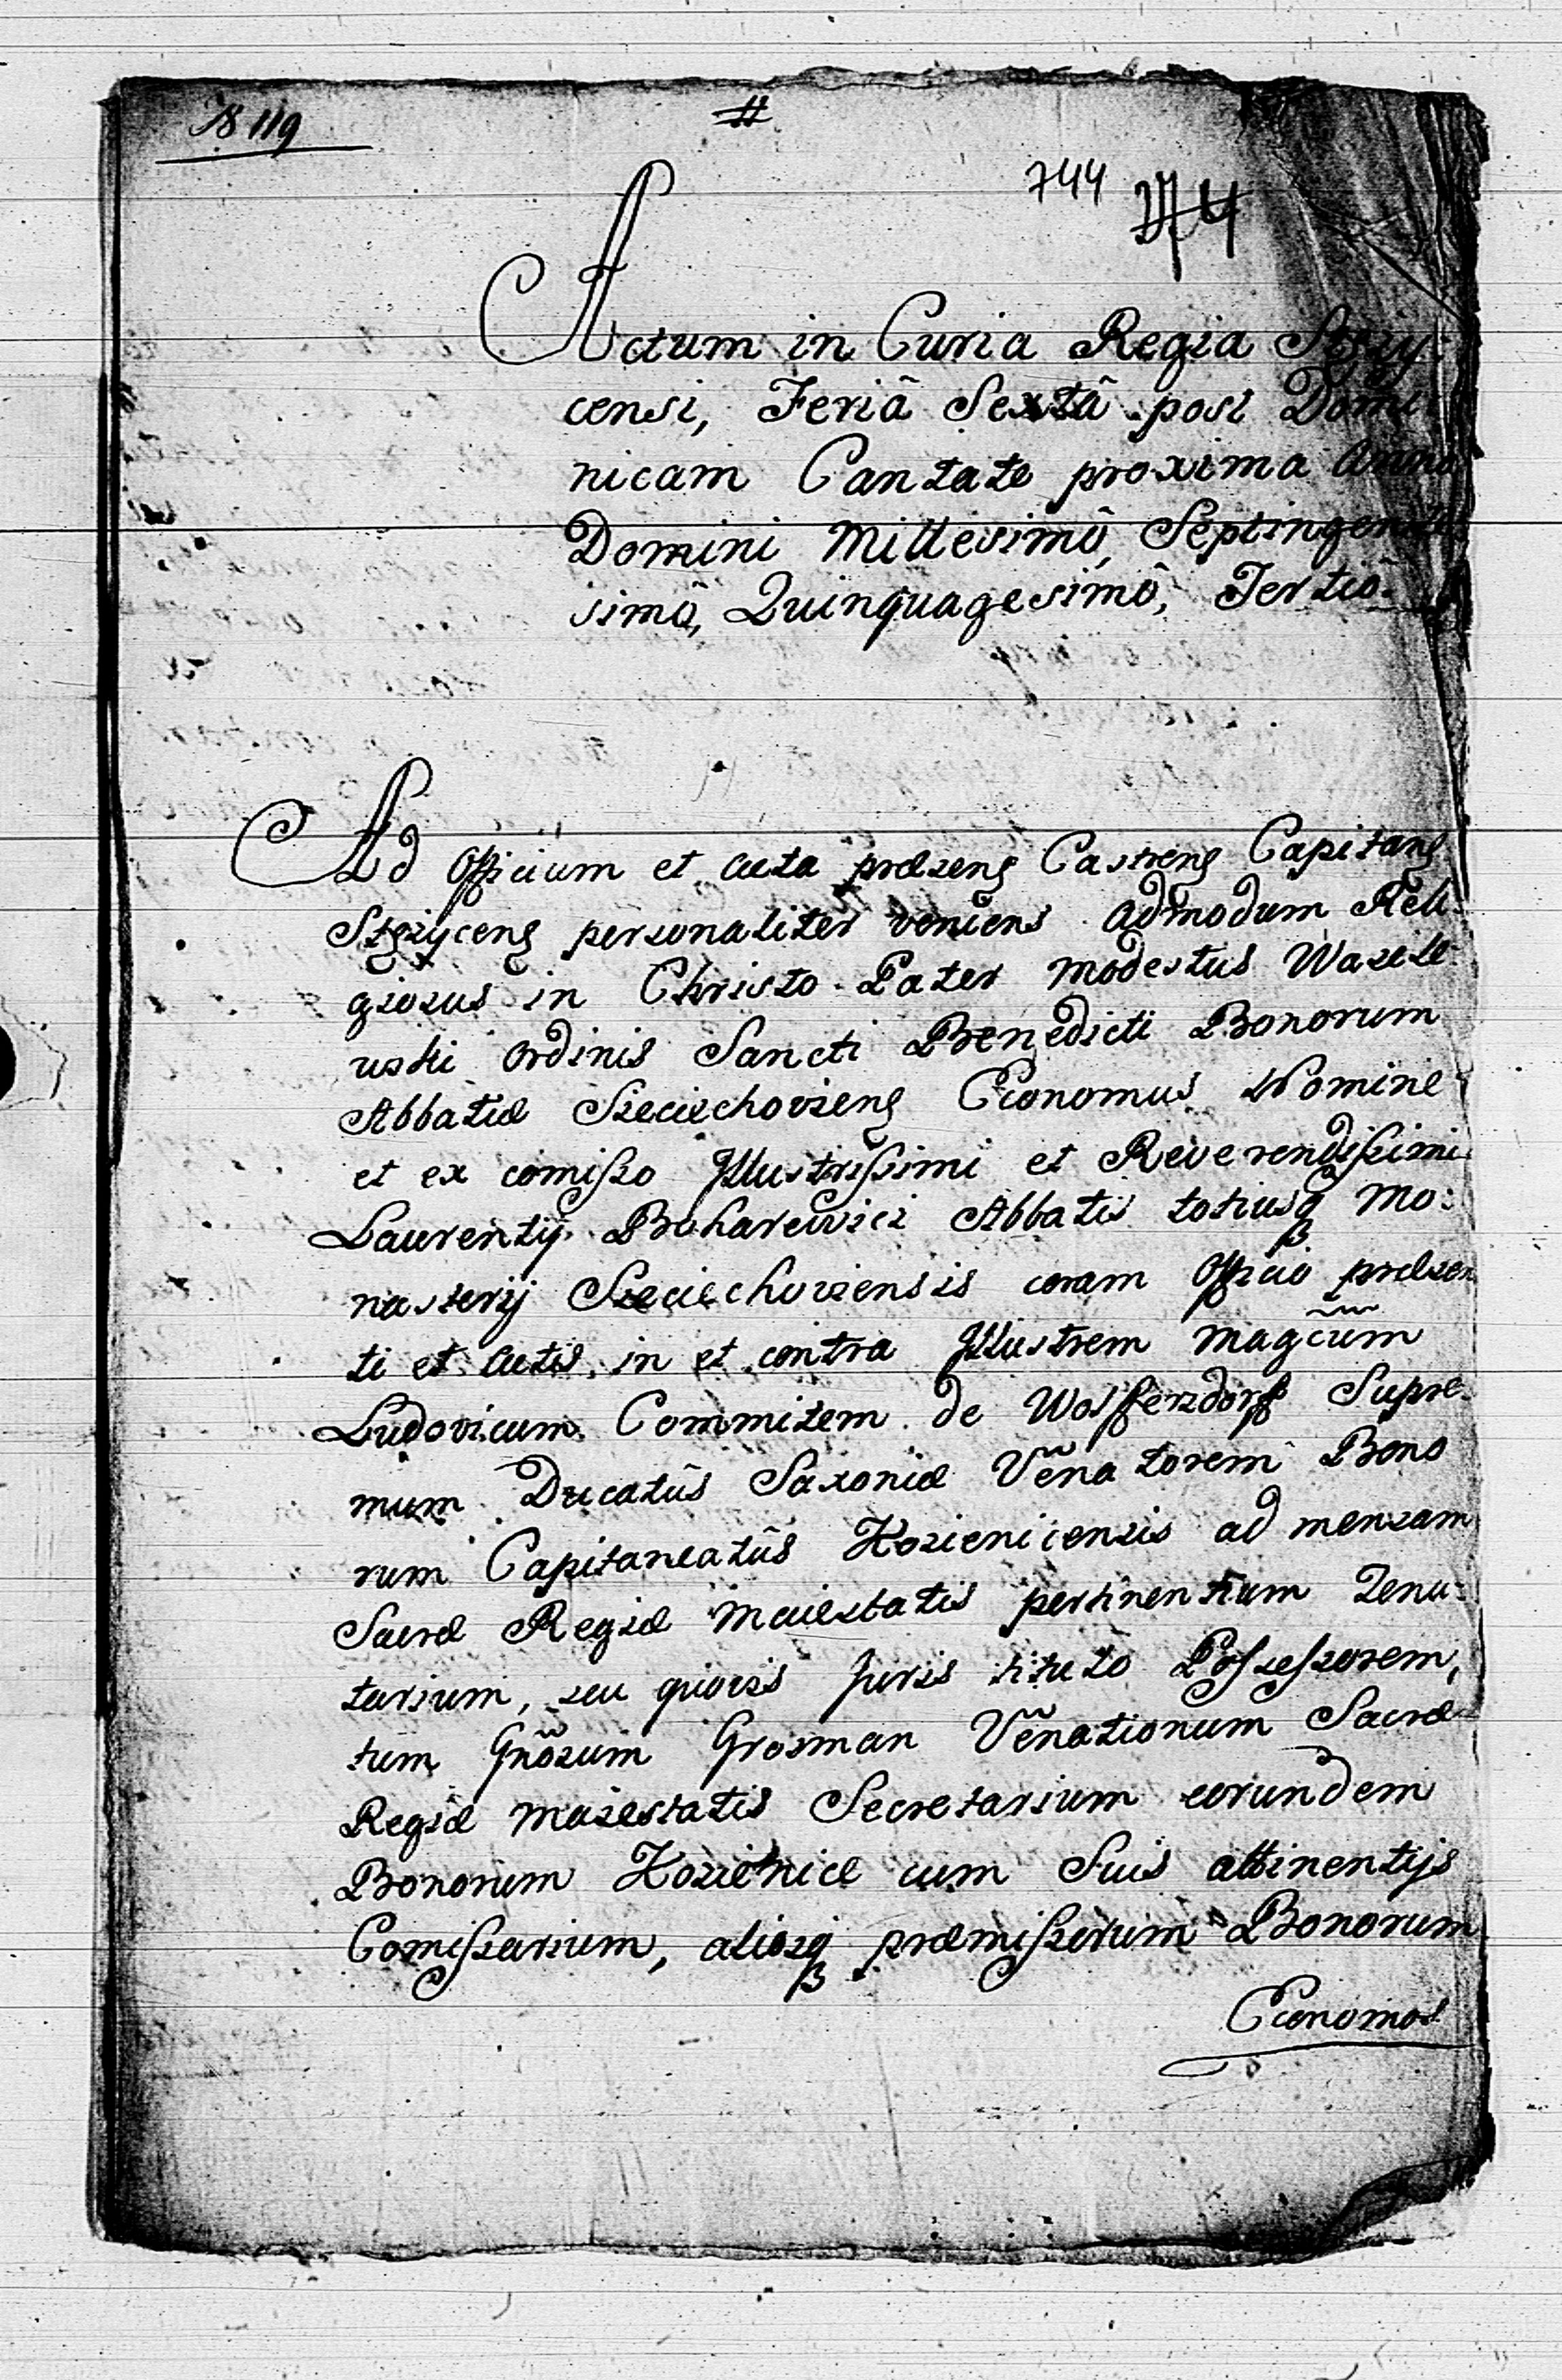 № 119
#
744
Actum in Curia Regia Stęży-
censi, Feriâ Sextâ post Domi
nicam Cantate proxima Anno
Domini Millesimô, Septingente
simô, Quinquagesimô, Tertiô.
Ad Officium et Acta præsens Castrens Capitans
Stężycens personaliter veniens Admodum Reli
giosus in Christo Pater Modestus Wasile
uski Ordinis Sancti Benedicti Bonorum
Abbatiæ Sieciechoviens Œconomus Nomine
et ex comisso Illustrissimi et Reverendissimi
Laurentij Boharewicz Abbatis totiusq Mo:
nasterij Sieciechoviensis coram Officio præsen
ti et Actis, in et contra Illustrem Magcũm
Ludovicum Commitem de Wolffersdorff Supre
mum Ducatûs Saxoniæ Vẽnatorem Bono
rum Capitaneatûs Kozienicensis ad mensam
Sacræ Regiæ Maiestatis pertinentium Tenu:
tarium, seu quovis Juris titulo Possessorem,
tum Gñosum Grosman Vẽnationum Sacræ
Regiæ Maiestatis Secretarium eorundem
Bonorum Kozienice cum Suis attinentijs
Comissarium, aliosq præmissorum Bonorum
Œconomos